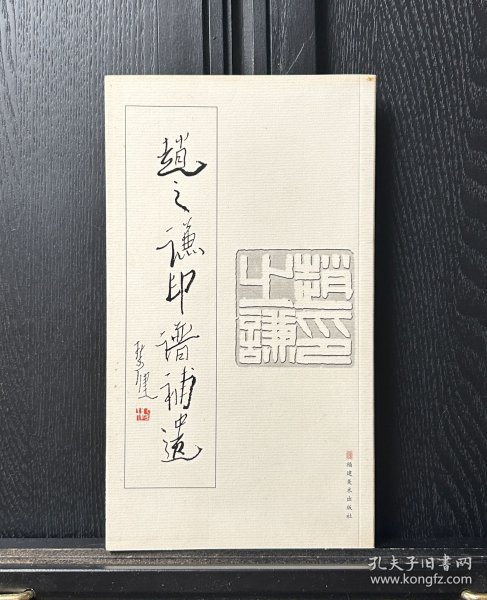 趙之谦印谱補遗
趙之謙印
福建美术出版社
孔夫子旧书网
www.kongfz.com